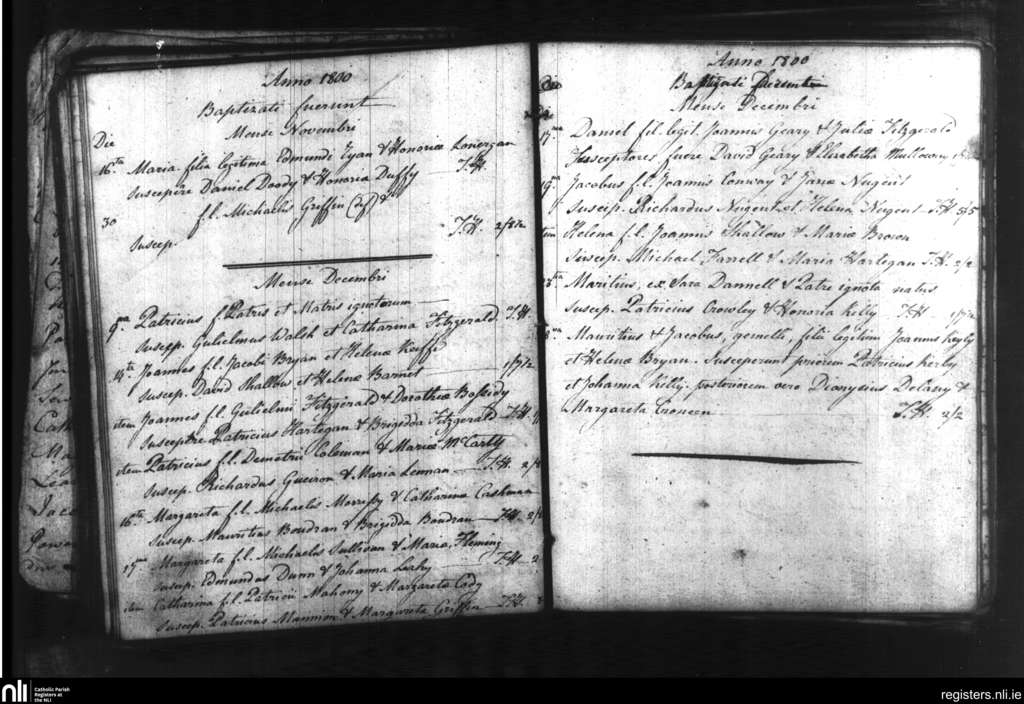 Anno 1800
Baptizati fuerunt
Mense Novembri
Die
16ta Maria filia legitima Edmundi Ryan & Honoriæ Lonergan
Suscepere Daniel Doody & Honoria Duffy — T.H.
30 f.l. Michaelis Griffin &
Suscep. T.H. 2/8½
Mense Decembri
9na Patricius f. Patris et Matris ignotorum —
Suscep. Gulielmus Walsh et Catharina Fitzgerald. T.H.
14ta Joannes f.l. Jacobi Bryan et Helenæ Keeffe
Suscep. David Shallow et Helena Barnet — 1/7½
idem Joannes f.l. Gulielmi Fitzgerald & Dorotheæ
Susceptre Patricius Hartegan & Brigidda Fitzgerald T.H.
idem Patricius f.l. Demetrii Coleman & Mariæ McCarty
Suscep. Richardus Gueiron & Maria Lennan — T.H. 2/
16ta Margareta f.l. Michaelis Morrissy & Catharinæ Cashman
Suscep. Mauritius Boudran & Brigidda Boudran — T.H. 2/
17ma Margareta f.l. Michaelis Sullivan & Maria Fleming
Suscep. Edmundus Dunn & Johanna Leahy — T.H. 2
idem Catharina f.l. Patricii Mahony & Margareta Cody
Suscep. Patricius Mannion & Margareta Griffin T.H.
Anno 1800
Baptizati Fuerunt
Mense Decembri
Die
17ma Daniel fil. legit. Joannis Geary & Juliæ Fitzgerald
Susceptores fuere David Geary & Elizabetha Mullowny
19na Jacobus f.l. Joannis Conway & Janæ Nugent
Suscip. Richardus Nugent et Helena Nugent T.H. 5/5
idem Helena f.l. Joannis Shallow & Mariæ Brown
Suscep. Michael Farrell & Maria Hartegan T.H. 2/2
Maritius, ex Sara Dannell & Patre ignoto natus
Suscep. Patricius Crowley & Honaria Kelly T.H. 1/7½
Mauritius & Jacobus, gemelli, filii legitimi Joannis Keyly
et Helenæ Bryan. Susceperunt priorem Patricius Kerby
et Johanna Kelly. posteriorem vero Dionysius Delany &
Margareta Croneen T.H. 2/2
nli
Catholic Parish
Registers at
the NLI
registers.nli.ie